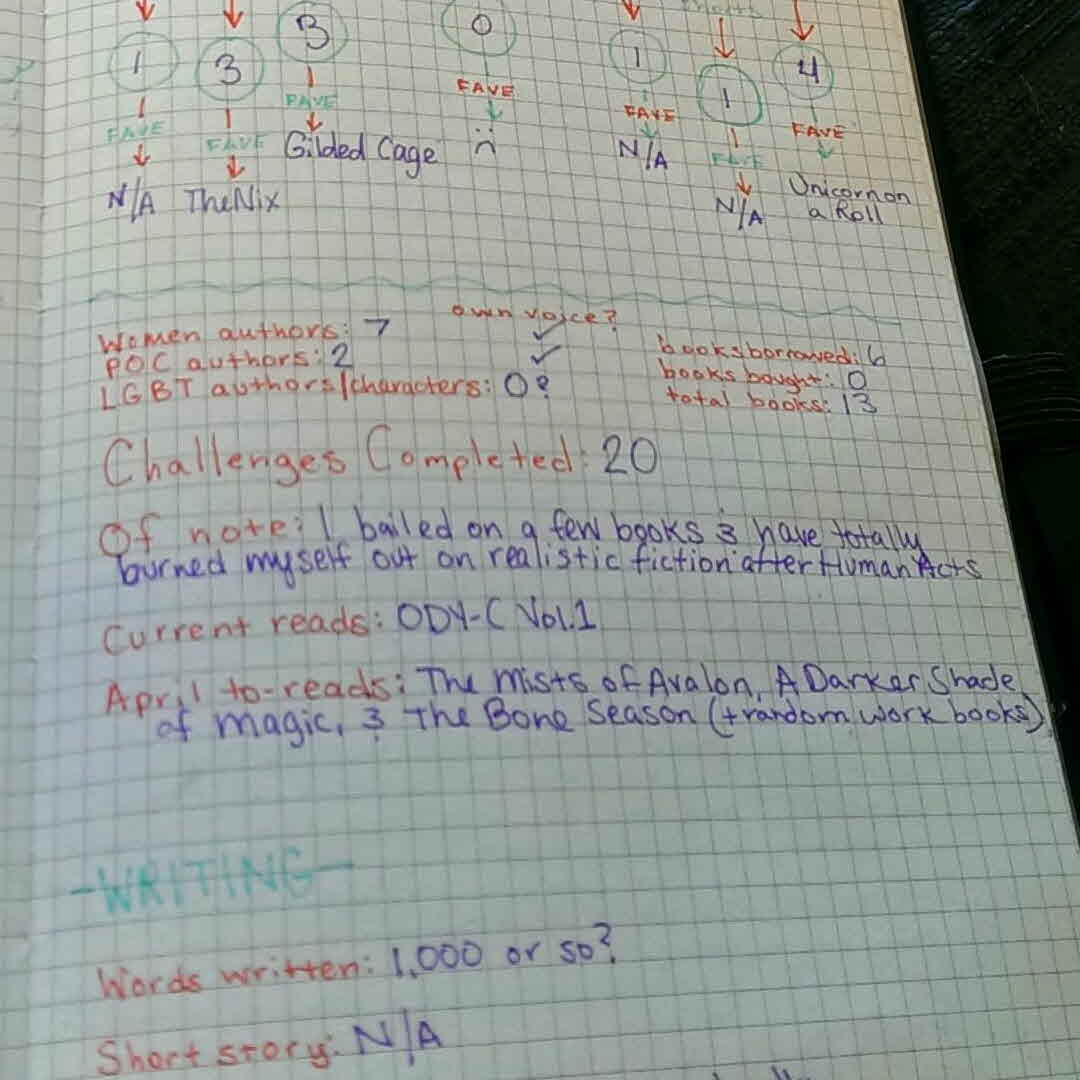 1 3 3 0 1 1 4
FAVE FAVE FAVE FAVE FAVE FAVE FAVE
N/A The Nix Gilded Cage :( N/A N/A Unicorn on
a Roll
own voice?
Women authors: 7 ✓
POC authors: 2 ✓
LGBT authors/characters: 0?
books borrowed: 6
books bought: 0
total books: 13
Challenges Completed: 20
Of note: I bailed on a few books & have totally
burned myself out on realistic fiction after Human Acts
Current reads: ODY-C Vol.1
April to-reads: The Mists of Avalon, A Darker Shade
of magic, & The Bone Season (+random work books)
-WRITING-
Words written: 1,000 or so?
Short story: N/A